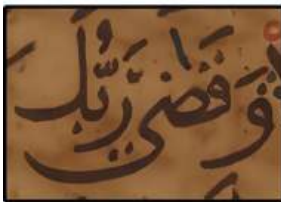 وَقَضَىٰ رَبُّكَ